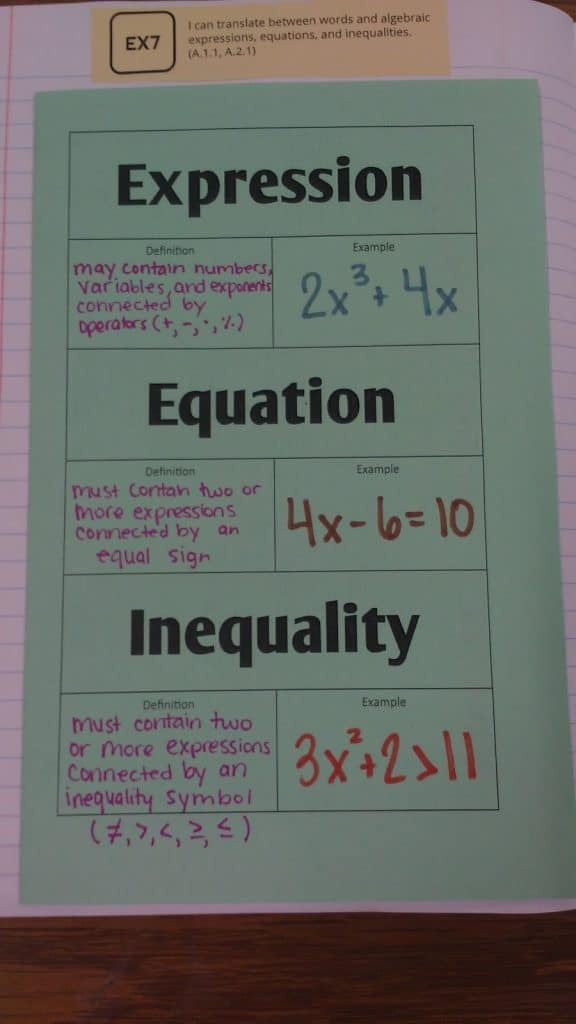 EX7
I can translate between words and algebraic
expressions, equations, and inequalities.
(A.1.1, A.2.1)
Expression
Definition
may contain numbers,
variables, and exponents
connected by
operators (+, -, ·, ÷)
Example
2x³ + 4x
Equation
Definition
must contain two or
more expressions
connected by an
equal sign
Example
4x - 6 = 10
Inequality
Definition
must contain two
or more expressions
connected by an
inequality symbol
(≠, >, <, ≥, ≤)
Example
3x² + 2 > 11